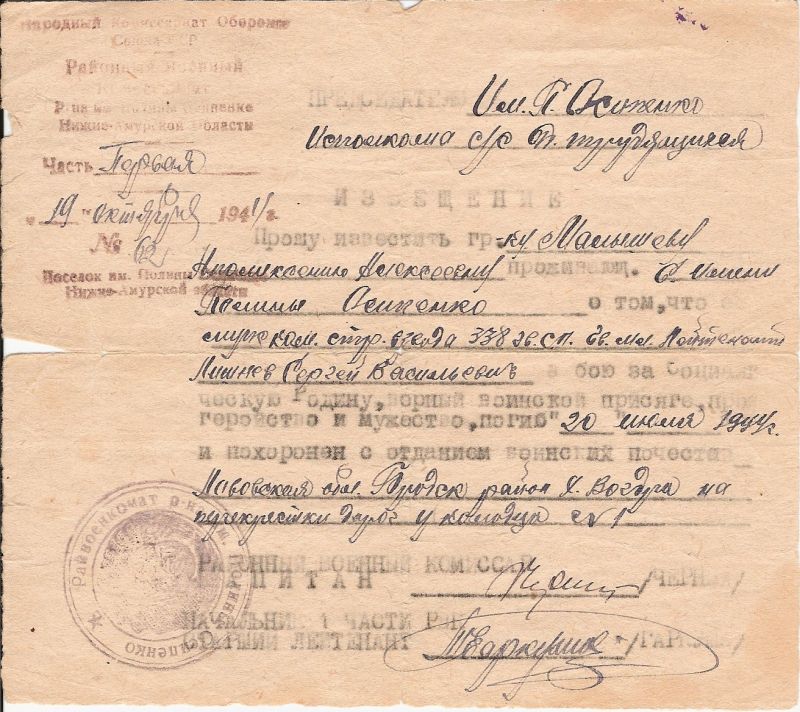 Народный Комиссариат Обороны
Союза ССР
Районный Военный
Р-на им. Полины Осипенко
Нижне-Амурской Области
Часть Первая
"19" октября 1944 г.
№ 62
Поселок им. Полины
Нижне-Амурской области
ПРЕДСЕДАТЕЛЮ Им. П. Осипенко
Исполкома с/с Д. трудящихся
ИЗВЕЩЕНИЕ
Прошу известить гр-ку Малышеву
Алексеевну проживающ. в имени
Полины Осипенко о том, что
ком. стр. взвода 338 зв. сп. гв. мл. Лейтенант
Лишнев Сергей Васильевич в бою за Социалис
ческую Родину, верный воинской присяге, про
геройство и мужество, погиб "20" июля 1944 г.
и похоронен с отданием воинских почестей
Львовская обл. Бродск район х. на
перекрестки дорог у колодца № 1
РАЙОННЫЙ ВОЕННЫЙ КОМИССАР
КАПИТАН /ЧЕРНЫЙ/
НАЧАЛЬНИК 1 ЧАСТИ РВК
СТАРШИЙ ЛЕЙТЕНАНТ Гаркуша /ГАРКУША/
Райвоенкомат р-на им. Полины Осипенко